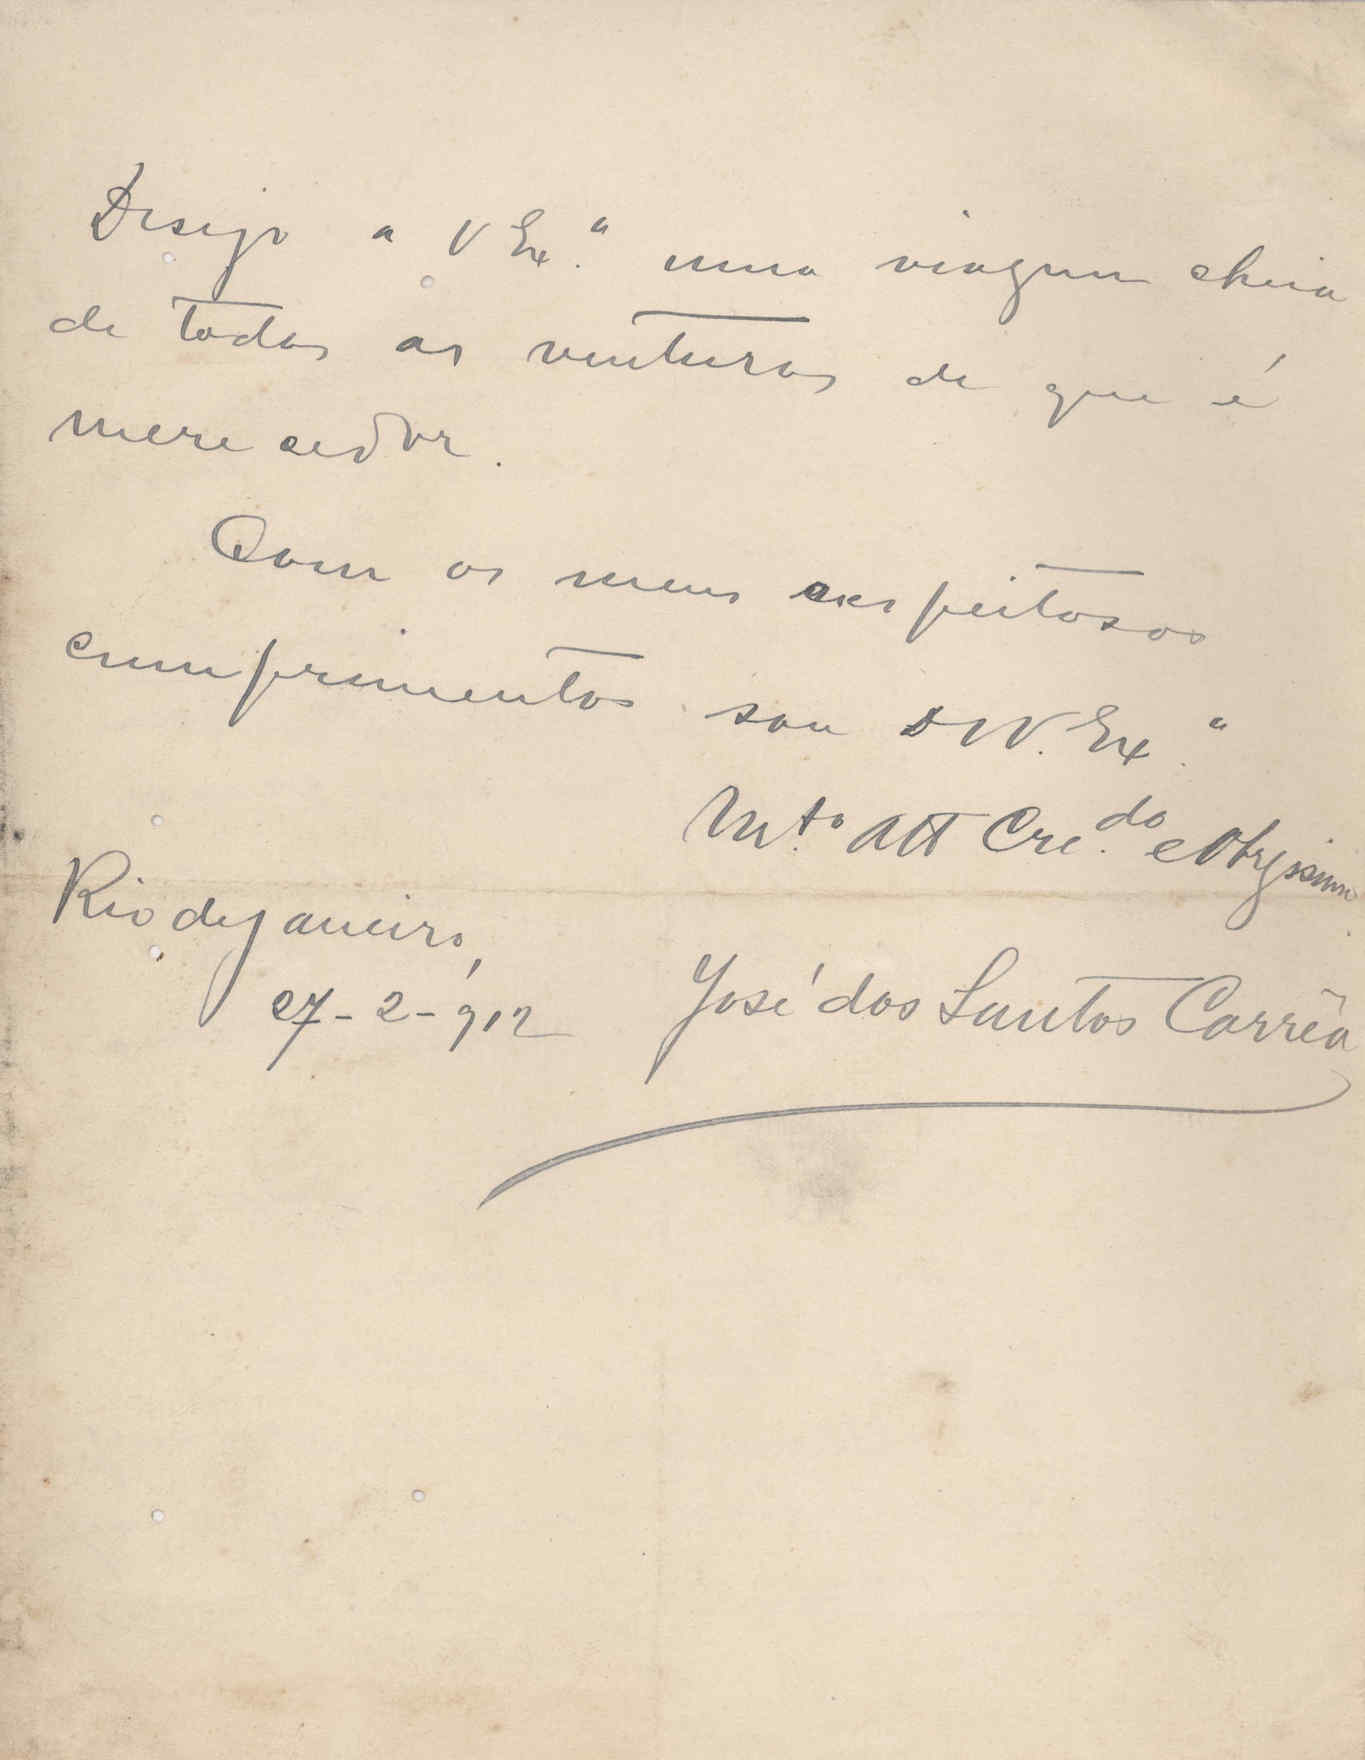 Desejo a V Ex.ª uma viagem cheia
de todas as venturas de que é
merecedor.
Com os meus respeitosos
cumprimentos sou D V. Ex.ª
Mt.º Att Cre.do e Obrgssimo
Rio de Janeiro,
27-2-912
José dos Santos Corrêa